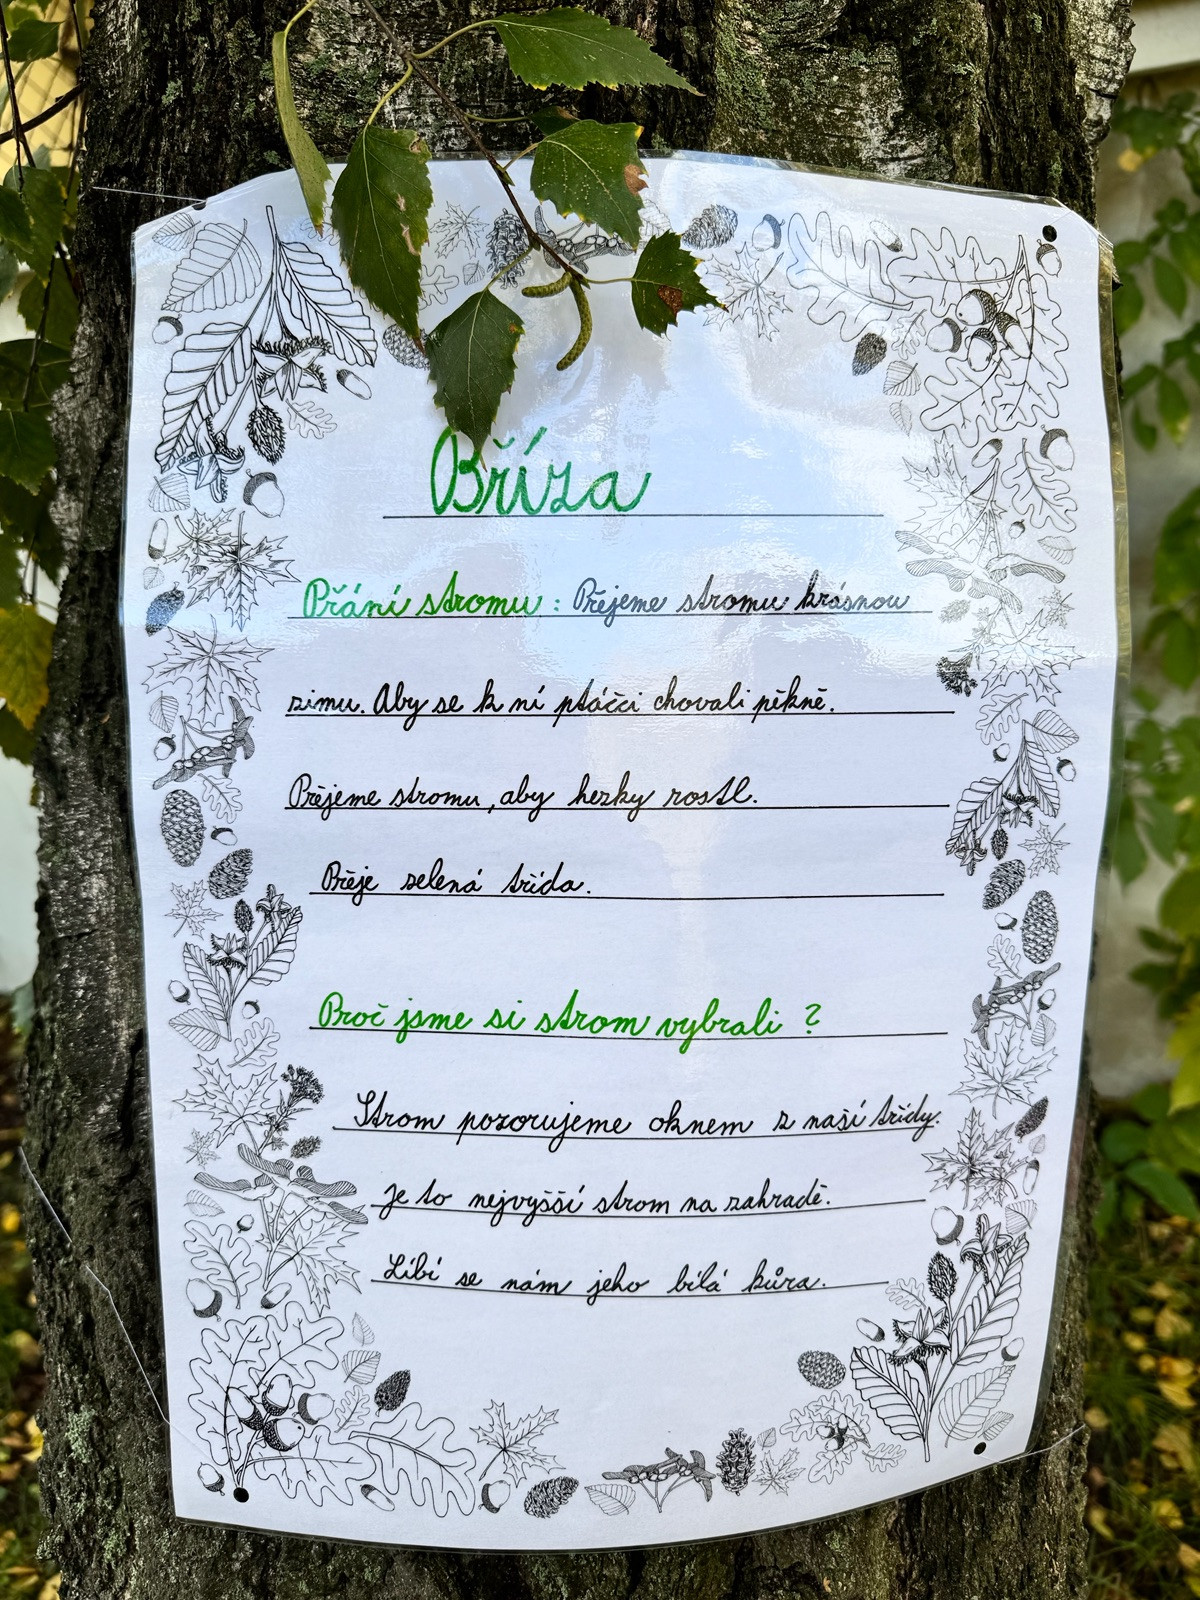 Bříza
Přání stromu : Přejeme stromu krásnou
zimu. Aby se k ní ptáčci chovali pěkně.
Přejeme stromu, aby hezky rostl.
Přeje zelená třída.
Proč jsme si strom vybrali ?
Strom pozorujeme oknem z naší třídy.
Je to nejvyšší strom na zahradě.
Líbí se nám jeho bílá kůra.